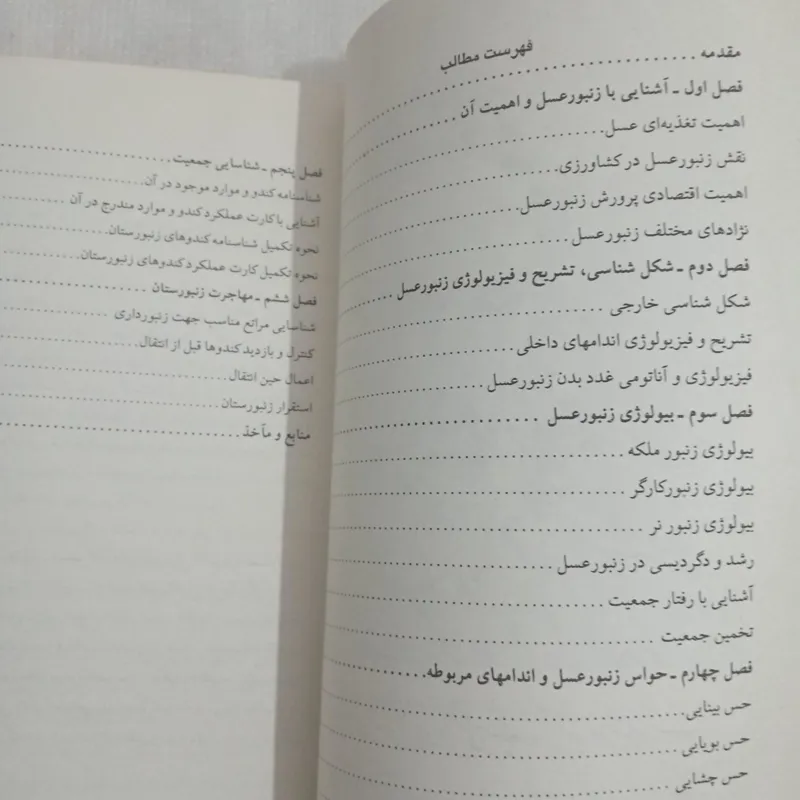 فهرست مطالب
مقدمه
فصل اول ـ آشنایی با زنبورعسل و اهمیت آن
اهمیت تغذیه‌ای عسل
نقش زنبورعسل در کشاورزی
اهمیت اقتصادی پرورش زنبورعسل
نژادهای مختلف زنبورعسل
فصل دوم ـ شکل شناسی، تشریح و فیزیولوژی زنبورعسل
شکل شناسی خارجی
تشریح و فیزیولوژی اندامهای داخلی
فیزیولوژی و آناتومی غدد بدن زنبورعسل
فصل سوم ـ بیولوژی زنبورعسل
بیولوژی زنبور ملکه
بیولوژی زنبورکارگر
بیولوژی زنبور نر
رشد و دگردیسی در زنبورعسل
آشنایی با رفتار جمعیت
تخمین جمعیت
فصل چهارم ـ حواس زنبورعسل و اندامهای مربوطه
حس بینایی
حس بویایی
حس چشایی
فصل پنجم ـ شناسایی جمعیت
شناسنامه کندو و موارد موجود در آن
آشنایی با کارت عملکرد کندو و موارد مندرج در آن
نحوه تکمیل شناسنامه کندوهای زنبورستان
نحوه تکمیل کارت عملکرد کندوهای زنبورستان
فصل ششم ـ مهاجرت زنبورستان
شناسایی مراتع مناسب جهت زنبورداری
کنترل و بازدید کندوها قبل از انتقال
اعمال حین انتقال
استقرار زنبورستان
منابع و مآخذ